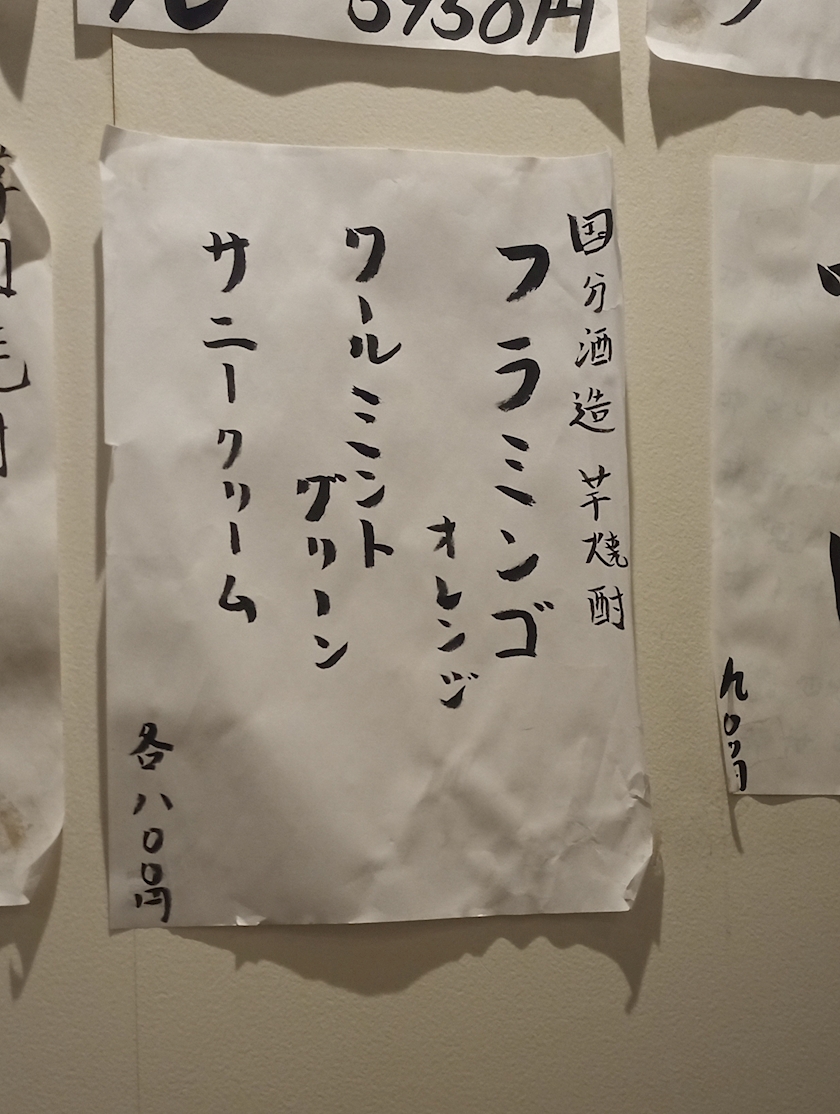 5930円
国分酒造 芋焼酎
フラミンゴ
オレンヂ
クールミント
グリーン
サニークリーム
各八〇〇円